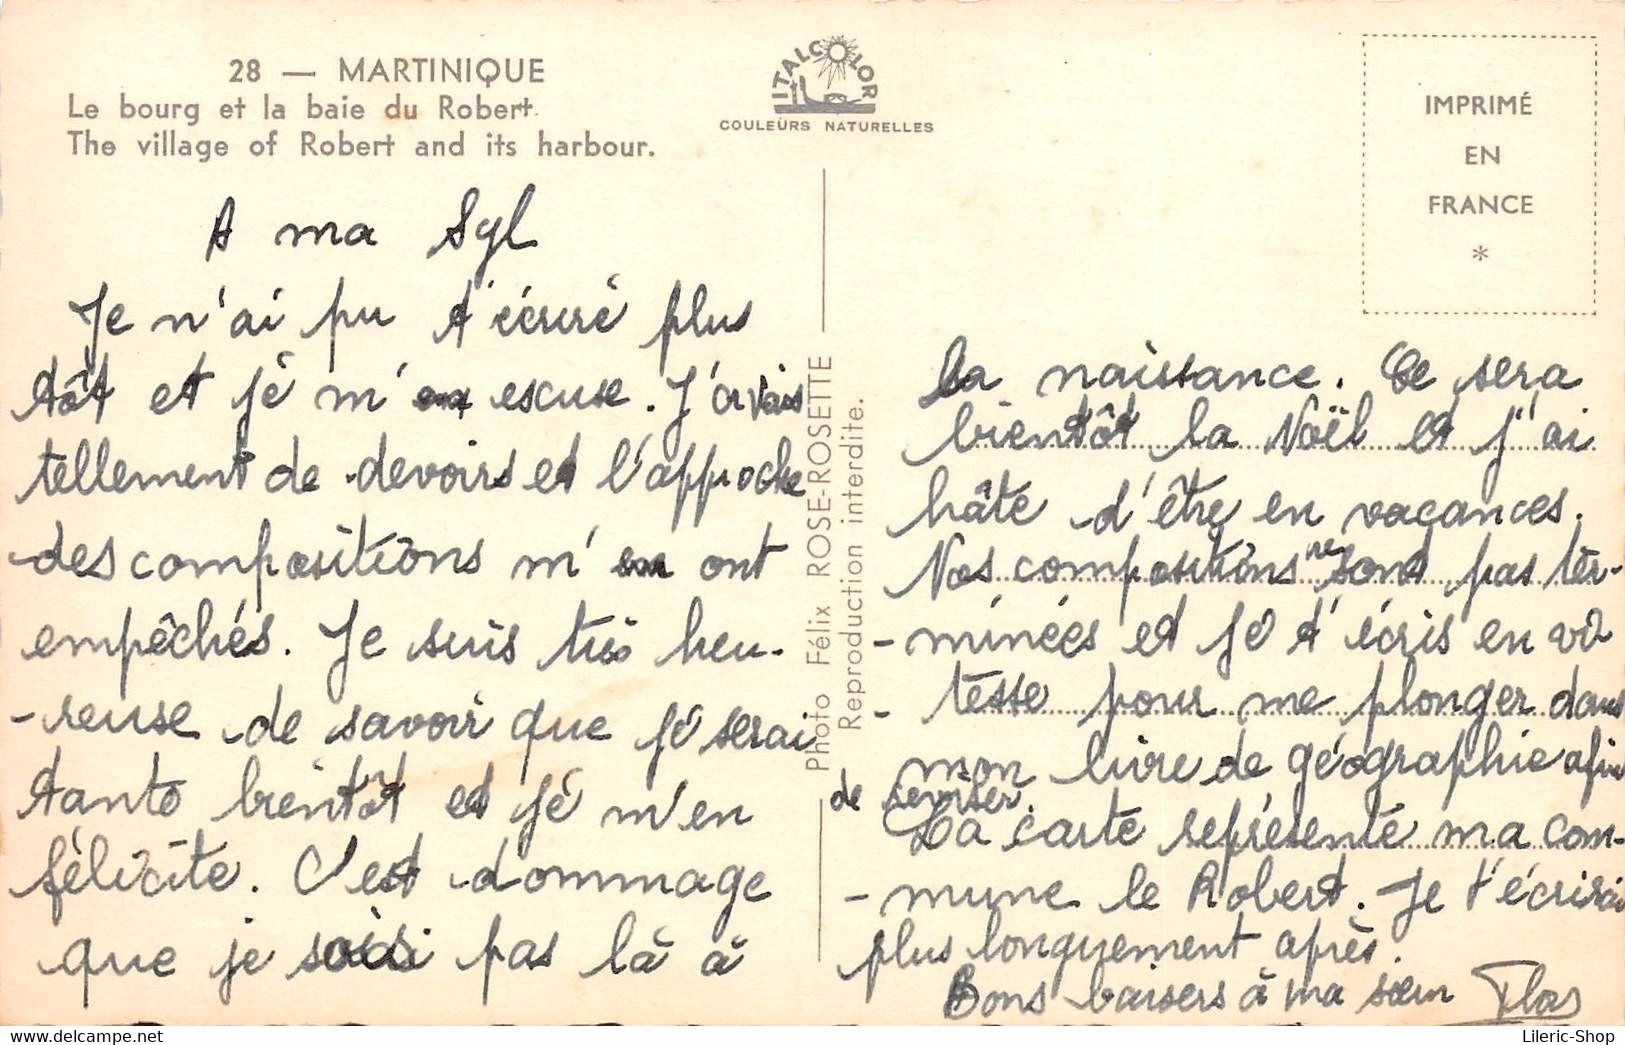 28 — MARTINIQUE
Le bourg et la baie du Robert.
The village of Robert and its harbour.
ITALCOLOR
COULEURS NATURELLES
IMPRIMÉ
EN
FRANCE
*
A ma Syl
Je n'ai pu t'écrire plus
tôt et je m'en escuse. J'avais
tellement de devoirs et l'approche
des compositions m'en ont
empêchés. Je suis très heu-
-reuse de savoir que je serai
tante bientôt et je m'en
félicite. C'est dommage
que je sois pas là à
Photo Félix ROSE-ROSETTE
Reproduction interdite.
la naissance. Ce sera
bientôt la Noël et j'ai
hâte d'être en vacances.
Nos compositions ne sont pas ter-
-minées et je t'écris en vi
-tesse pour me plonger dans
mon livre de géographie afin
de reviser.
La carte représente ma com-
-mune le Robert. Je t'écrirai
plus longuement après.
Bons baisers à ma sœur Flor
Lileric-Shop